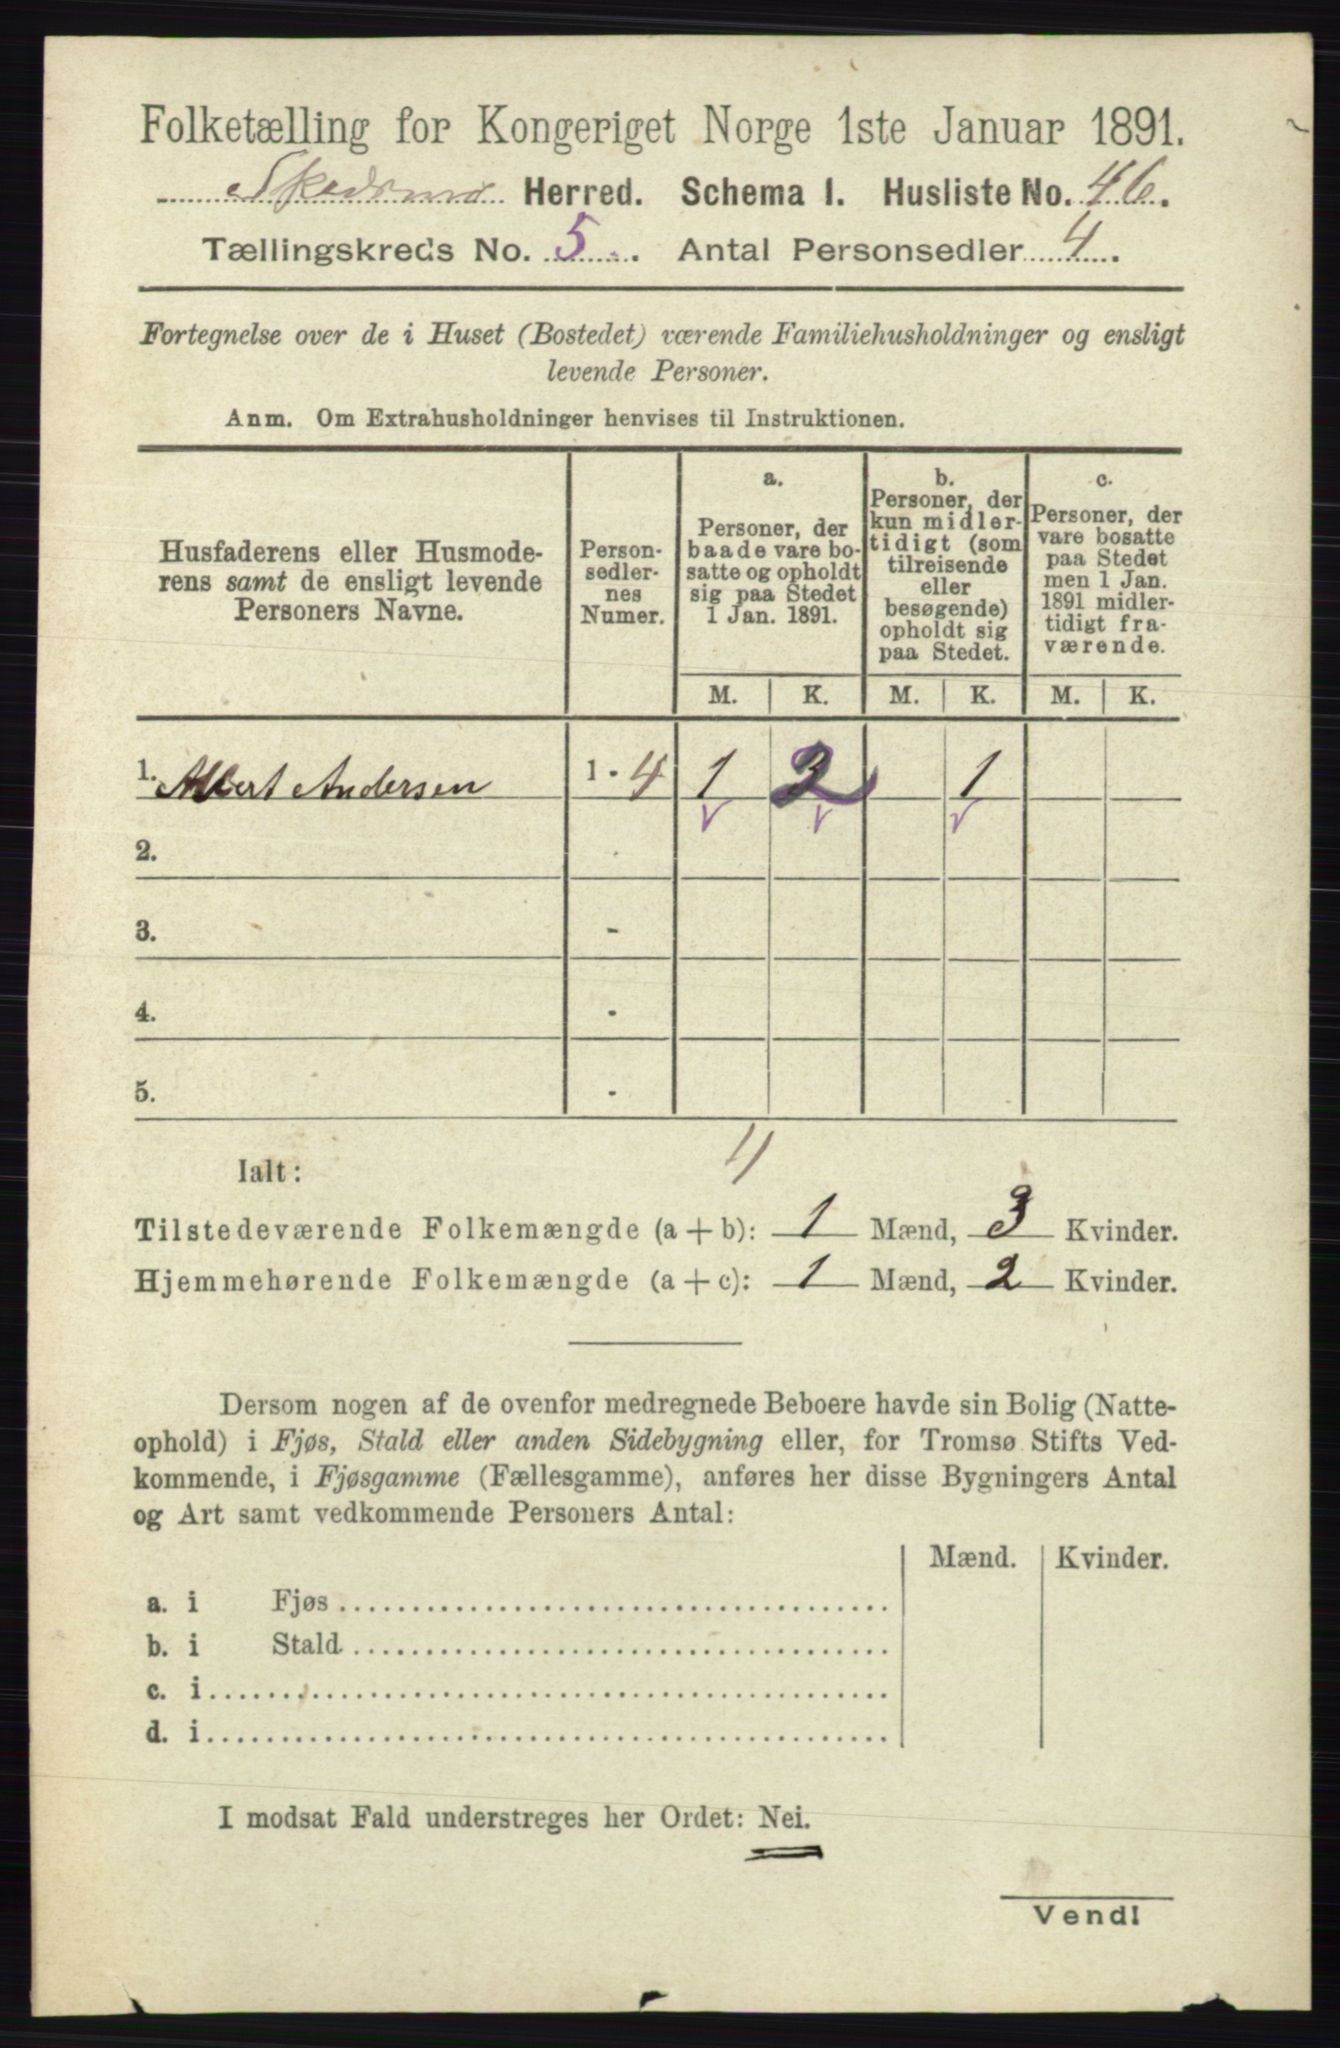 Folketælling for Kongeriget Norge 1ste Januar 1891.
Skedsmo Herred. Schema I. Husliste No. 46.
Tællingskreds No. 5. Antal Personsedler 4.
Fortegnelse over de i Huset (Bostedet) værende Familiehusholdninger og ensligt
levende Personer.
Anm. Om Extrahusholdninger henvises til Instruktionen.
Husfaderens eller Husmode-
rens samt de ensligt levende
Personers Navne.
Person-
sedler-
nes
Numer.
a.
Personer, der
baade vare bo-
satte og opholdt
sig paa Stedet
1 Jan. 1891.
b.
Personer, der
kun midler-
tidigt (som
tilreisende
eller
besøgende)
opholdt sig
paa Stedet.
c.
Personer, der
vare bosatte
paa Stedet
men 1 Jan.
1891 midler-
tidigt fra-
værende.
M. K. M. K. M. K.
1. Albert Andersen 1 - 4 1 2 1
2.
3. -
4. -
5. -
4
Ialt:
Tilstedeværende Folkemængde (a + b): 1 Mænd, 3 Kvinder.
Hjemmehørende Folkemængde (a + c): 1 Mænd, 2 Kvinder.
Dersom nogen af de ovenfor medregnede Beboere havde sin Bolig (Natte-
ophold) i Fjøs, Stald eller anden Sidebygning eller, for Tromsø Stifts Ved-
kommende, i Fjøsgamme (Fællesgamme), anføres her disse Bygningers Antal
og Art samt vedkommende Personers Antal:
Mænd. Kvinder.
a. i Fjøs
b. i Stald
c. i
d. i
I modsat Fald understreges her Ordet: Nei.
Vend!